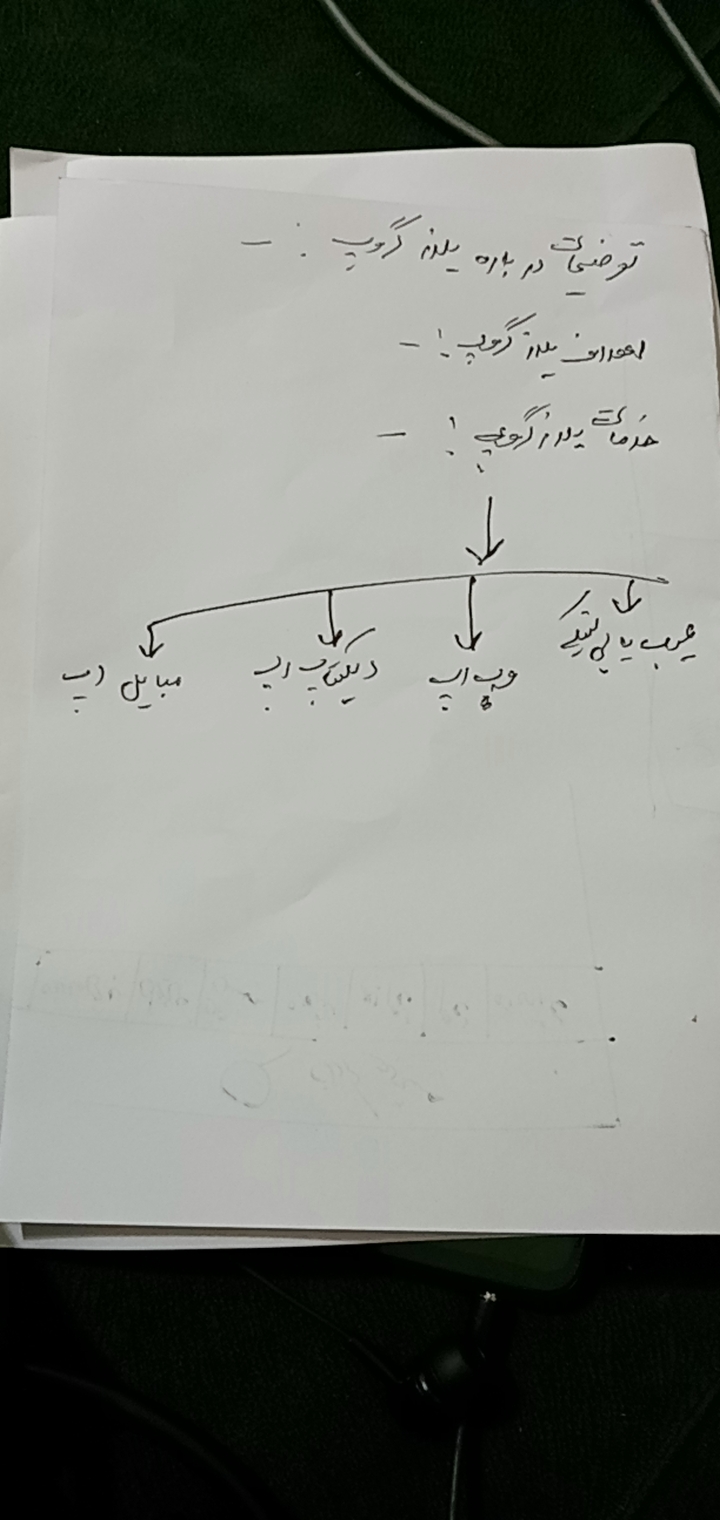 توضیحات در باره یلدز گروپ :-
اهداف یلدز گروپ :-
خدمات یلدز گروپ :-
عیب یابی تخنیکی
وب اپ
دیکتاپ اپ
مبایل اپ